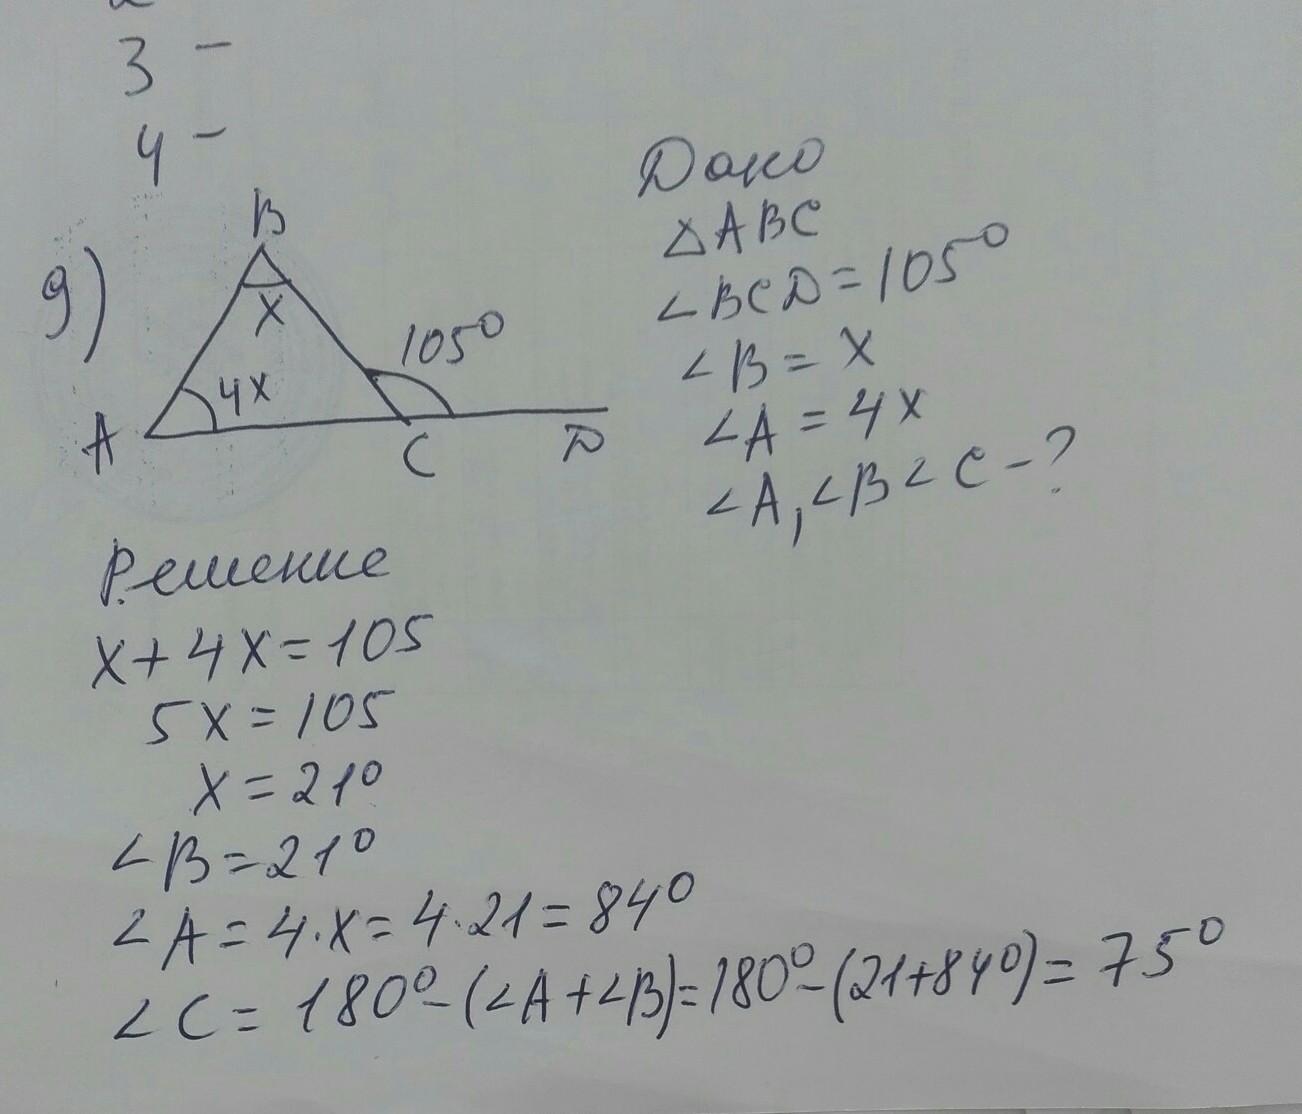 3 –
4 –
9)
B
x
4x
105°
A
C
D
Дано
△ABC
∠BCD = 105°
∠B = x
∠A = 4x
∠A, ∠B ∠C – ?
Решение
x + 4x = 105
5x = 105
x = 21°
∠B = 21°
∠A = 4·x = 4·21 = 84°
∠C = 180° – (∠A + ∠B) = 180° – (21 + 84°) = 75°